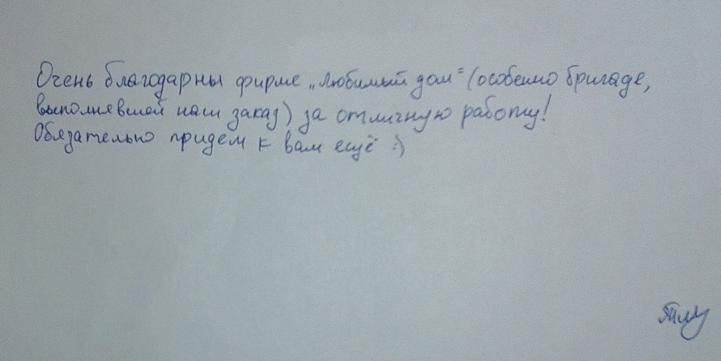 Очень благодарны фирме „Любимый дом" (особенно бригаде,
выполнявшей наш заказ) за отличную работу!
Обязательно придем к вам ещё :)